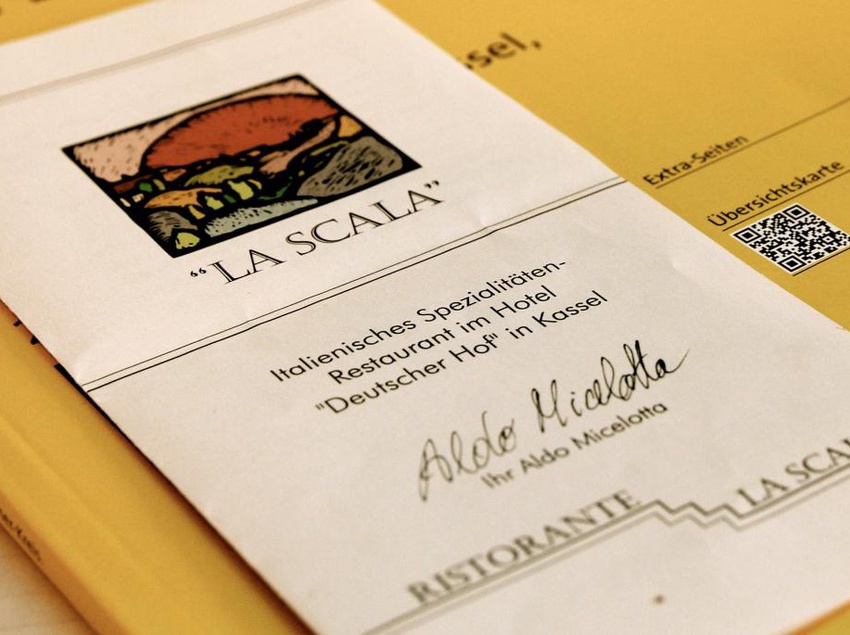 "LA SCALA"
Italienisches Spezialitäten-
Restaurant im Hotel
"Deutscher Hof" in Kassel
Aldo Micelotta
Ihr Aldo Micelotta
RISTORANTE
LA SCAL
ssel,
Extra-Seiten
Übersichtskarte